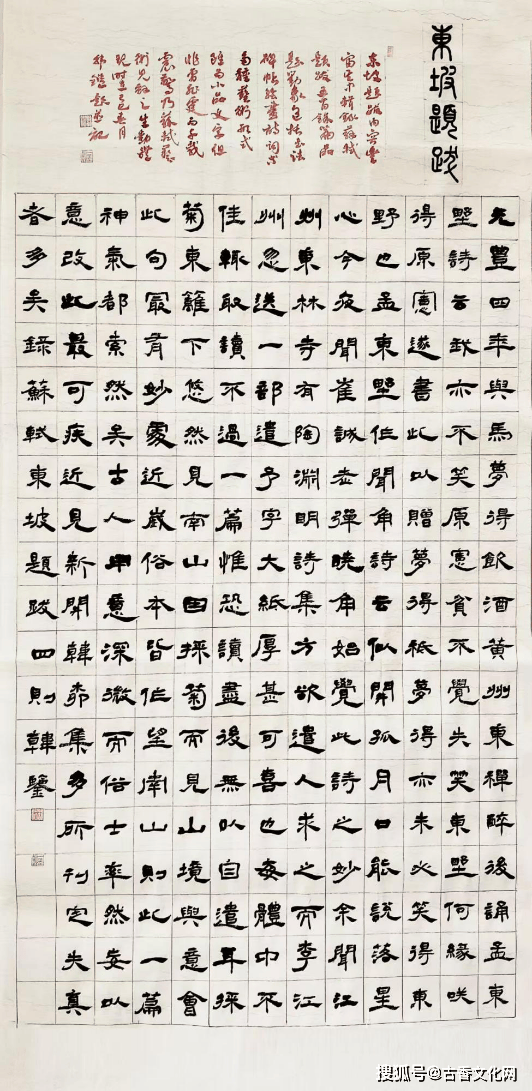 東坡題跋
東坡題跋內容豐
題跋六百餘篇品
題對象包括書法
碑帖繪畫詩詞等
多種藝術形式
雖為小品文字但
元豐四年與馬夢得飲酒黃州東禪醉後誦孟東
野詩云我亦不笑原憲貧不覺失笑東野何緣咲
得原憲遂書此以贈夢得祗夢得亦未必笑得東
野也孟東野作聞角詩云似開孤月口能說落星
心今夜聞崔誠老彈曉角始覺此詩之妙余聞江
州東林寺有陶淵明詩集方欲遣人求之而李江
州忽送一部遺予字大紙厚甚可喜也每體中不
佳輒取讀不過一篇惟恐讀盡後無以自遣耳採
菊東籬下悠然見南山因採菊而見山境與意會
此句最有妙處近歲俗本皆作望南山則此一篇
神氣都索然矣古人用意深微而俗士率然妄以
意改此最可疾近見新開韓柳集多所刊定失真
者多矣錄蘇軾東坡題跋四則韓鑒
搜狐号@古香文化网